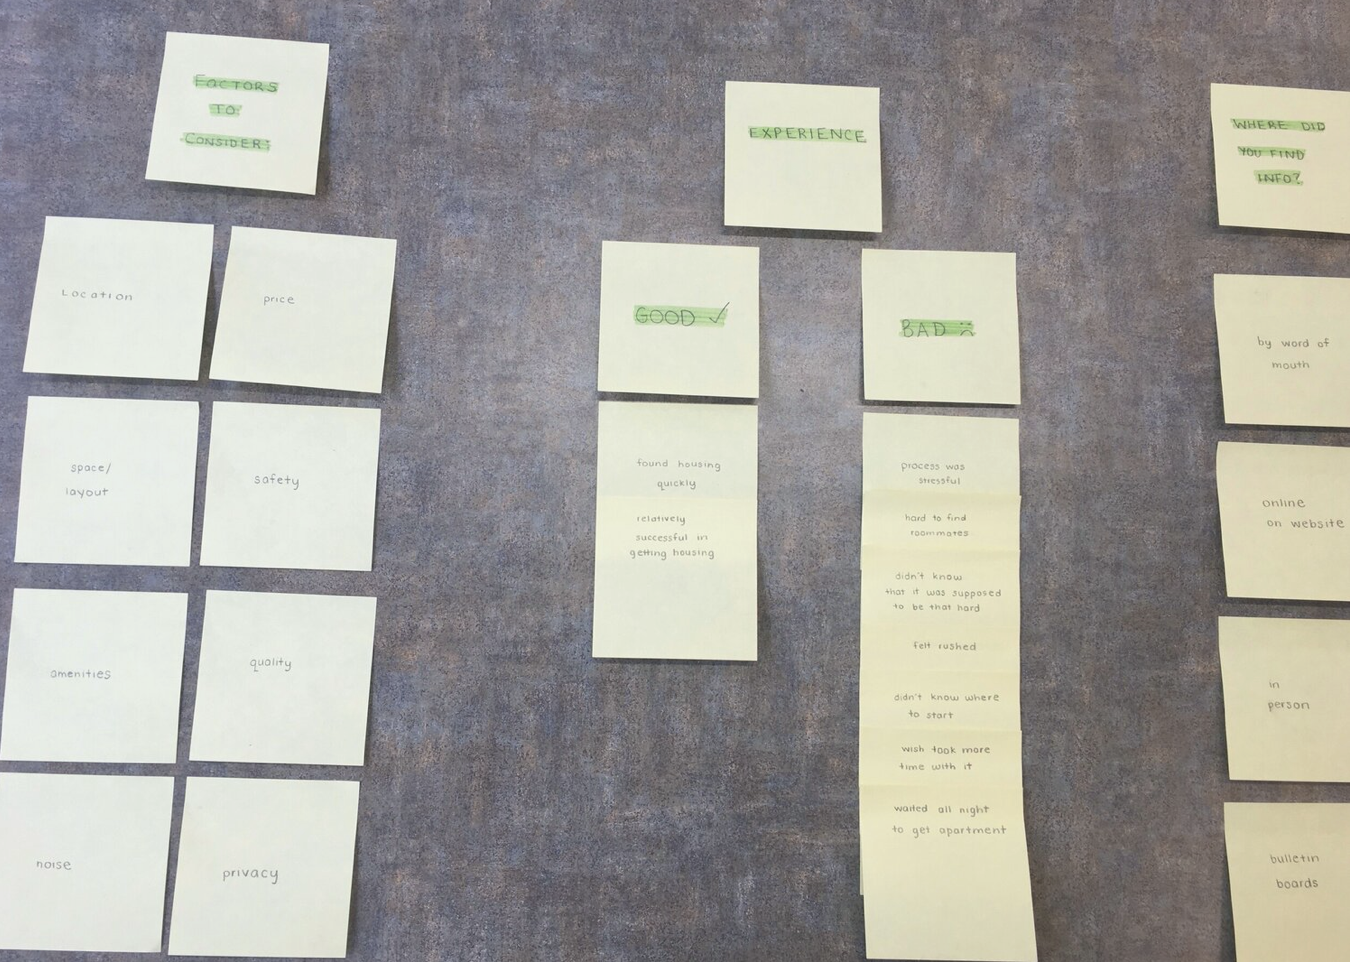 FACTORS
TO
CONSIDER:
Location
price
space/
layout
safety
amenities
quality
noise
privacy
EXPERIENCE
GOOD ✓
found housing
quickly
relatively
successful in
getting housing
BAD ☹
process was
stressful
hard to find
roommates
didn't know
that it was supposed
to be that hard
felt rushed
didn't know where
to start
wish took more
time with it
waited all night
to get apartment
WHERE DID
YOU FIND
INFO?
by word of
mouth
online
on website
in
person
bulletin
boards